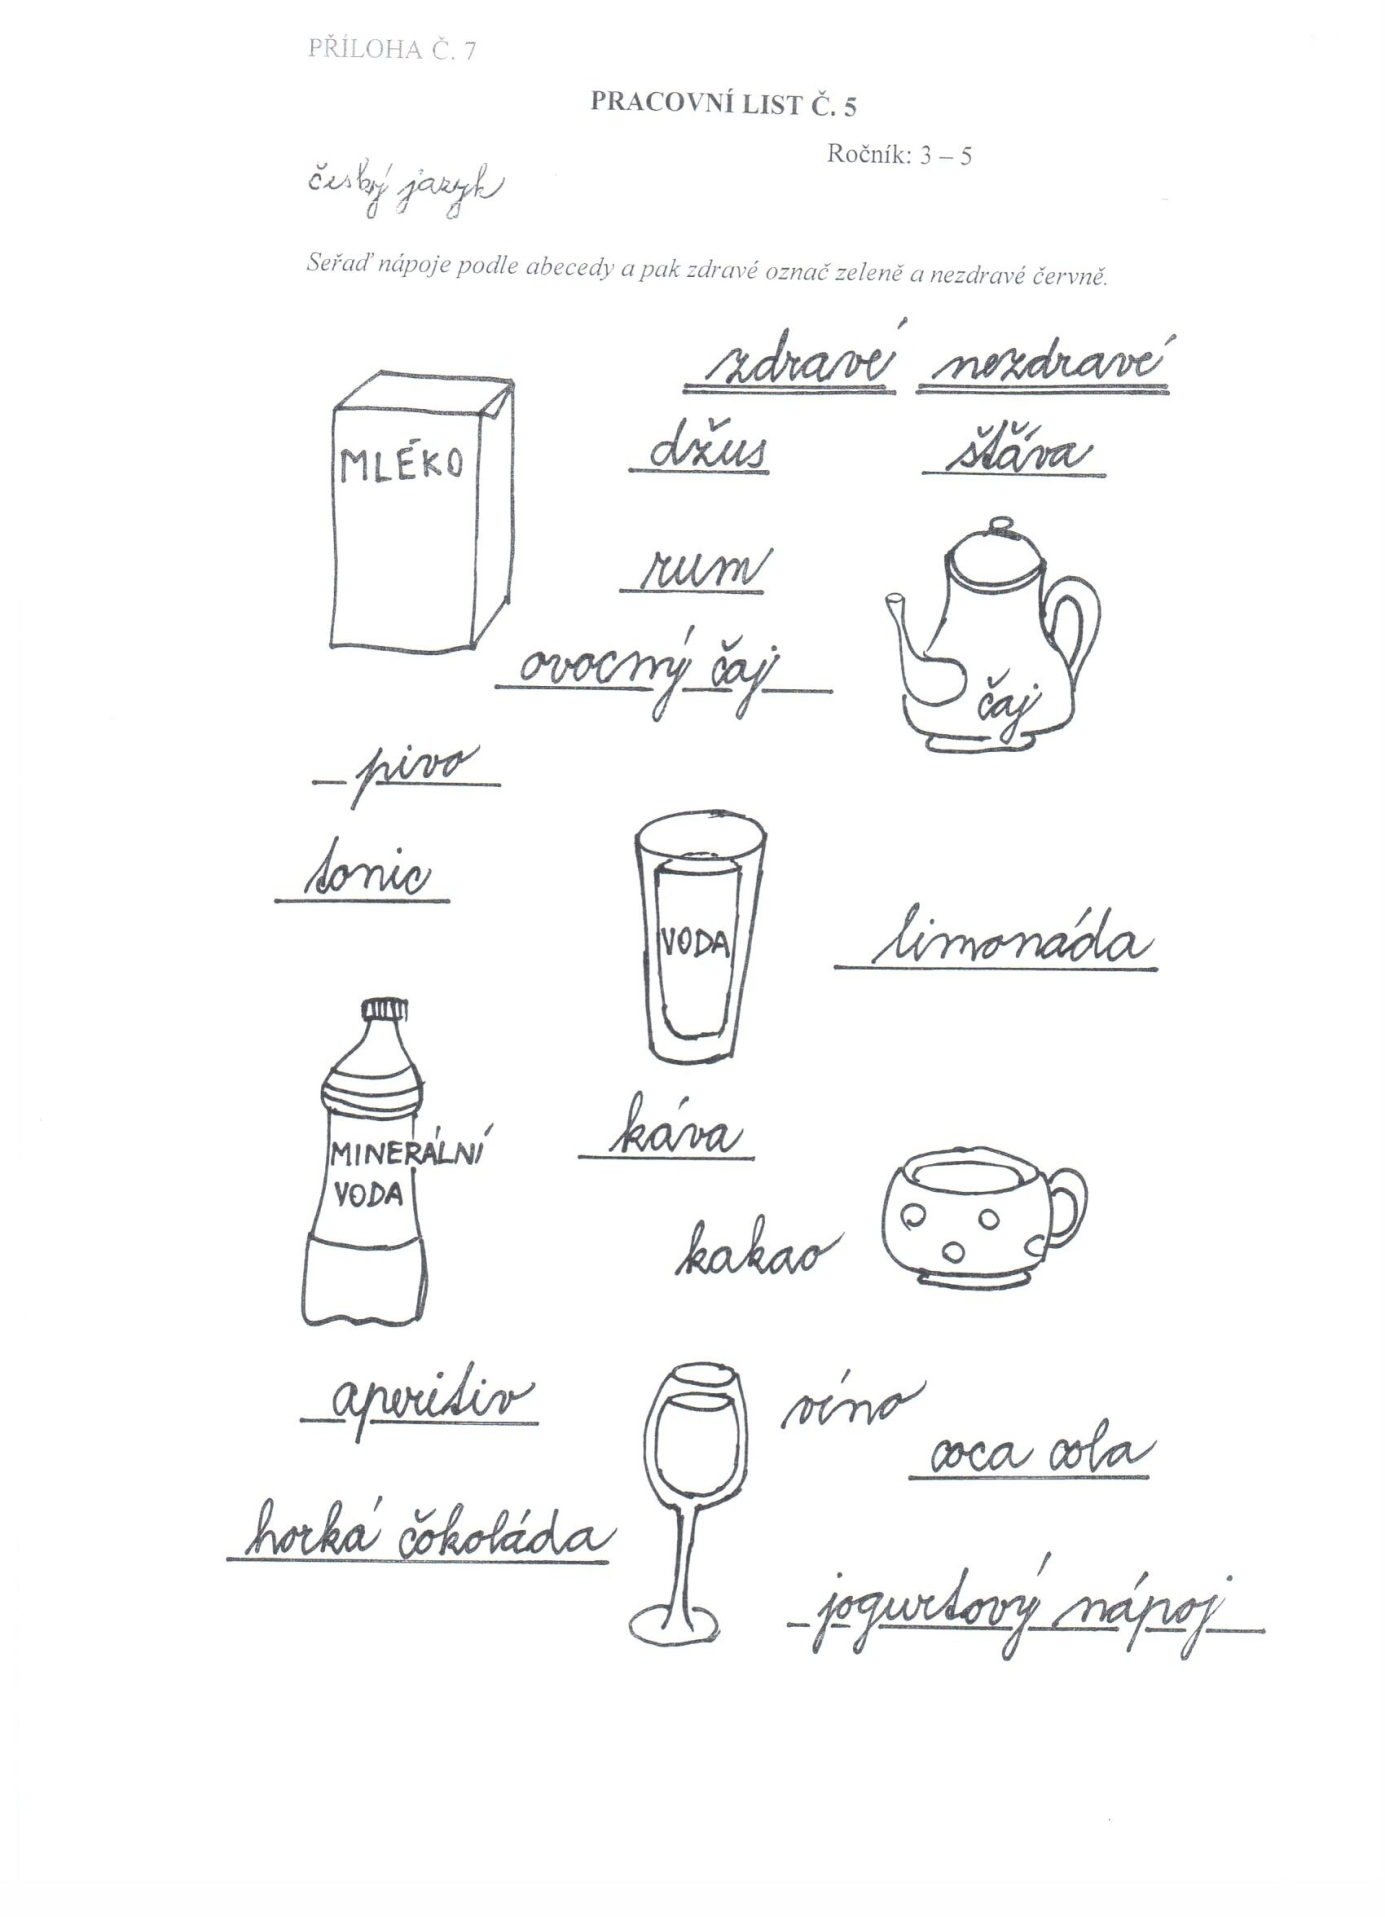 PŘÍLOHA Č. 7
PRACOVNÍ LIST Č. 5
Ročník: 3 – 5
český jazyk
Seřaď nápoje podle abecedy a pak zdravé označ zeleně a nezdravé červně.
zdravé nezdravé
MLÉKO
džus šťáva
rum
ovocný čaj
čaj
pivo
tonic
VODA
limonáda
MINERÁLNÍ
VODA
káva
kakao
aperitiv
víno
coca cola
horká čokoláda
jogurtový nápoj